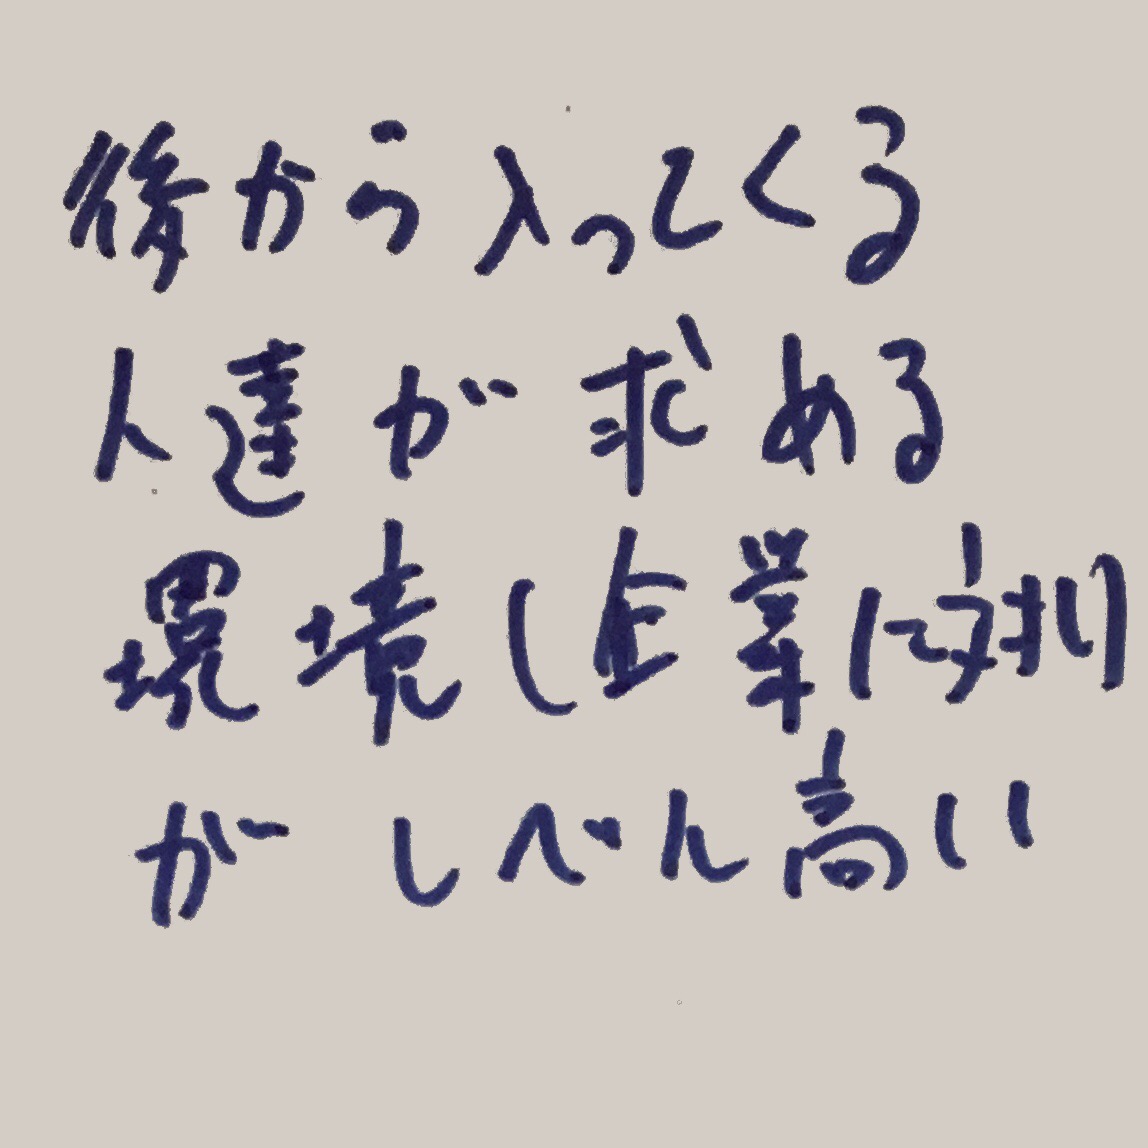 後から入ってくる
人達が求める
環境し企業に対し
がレベル高い